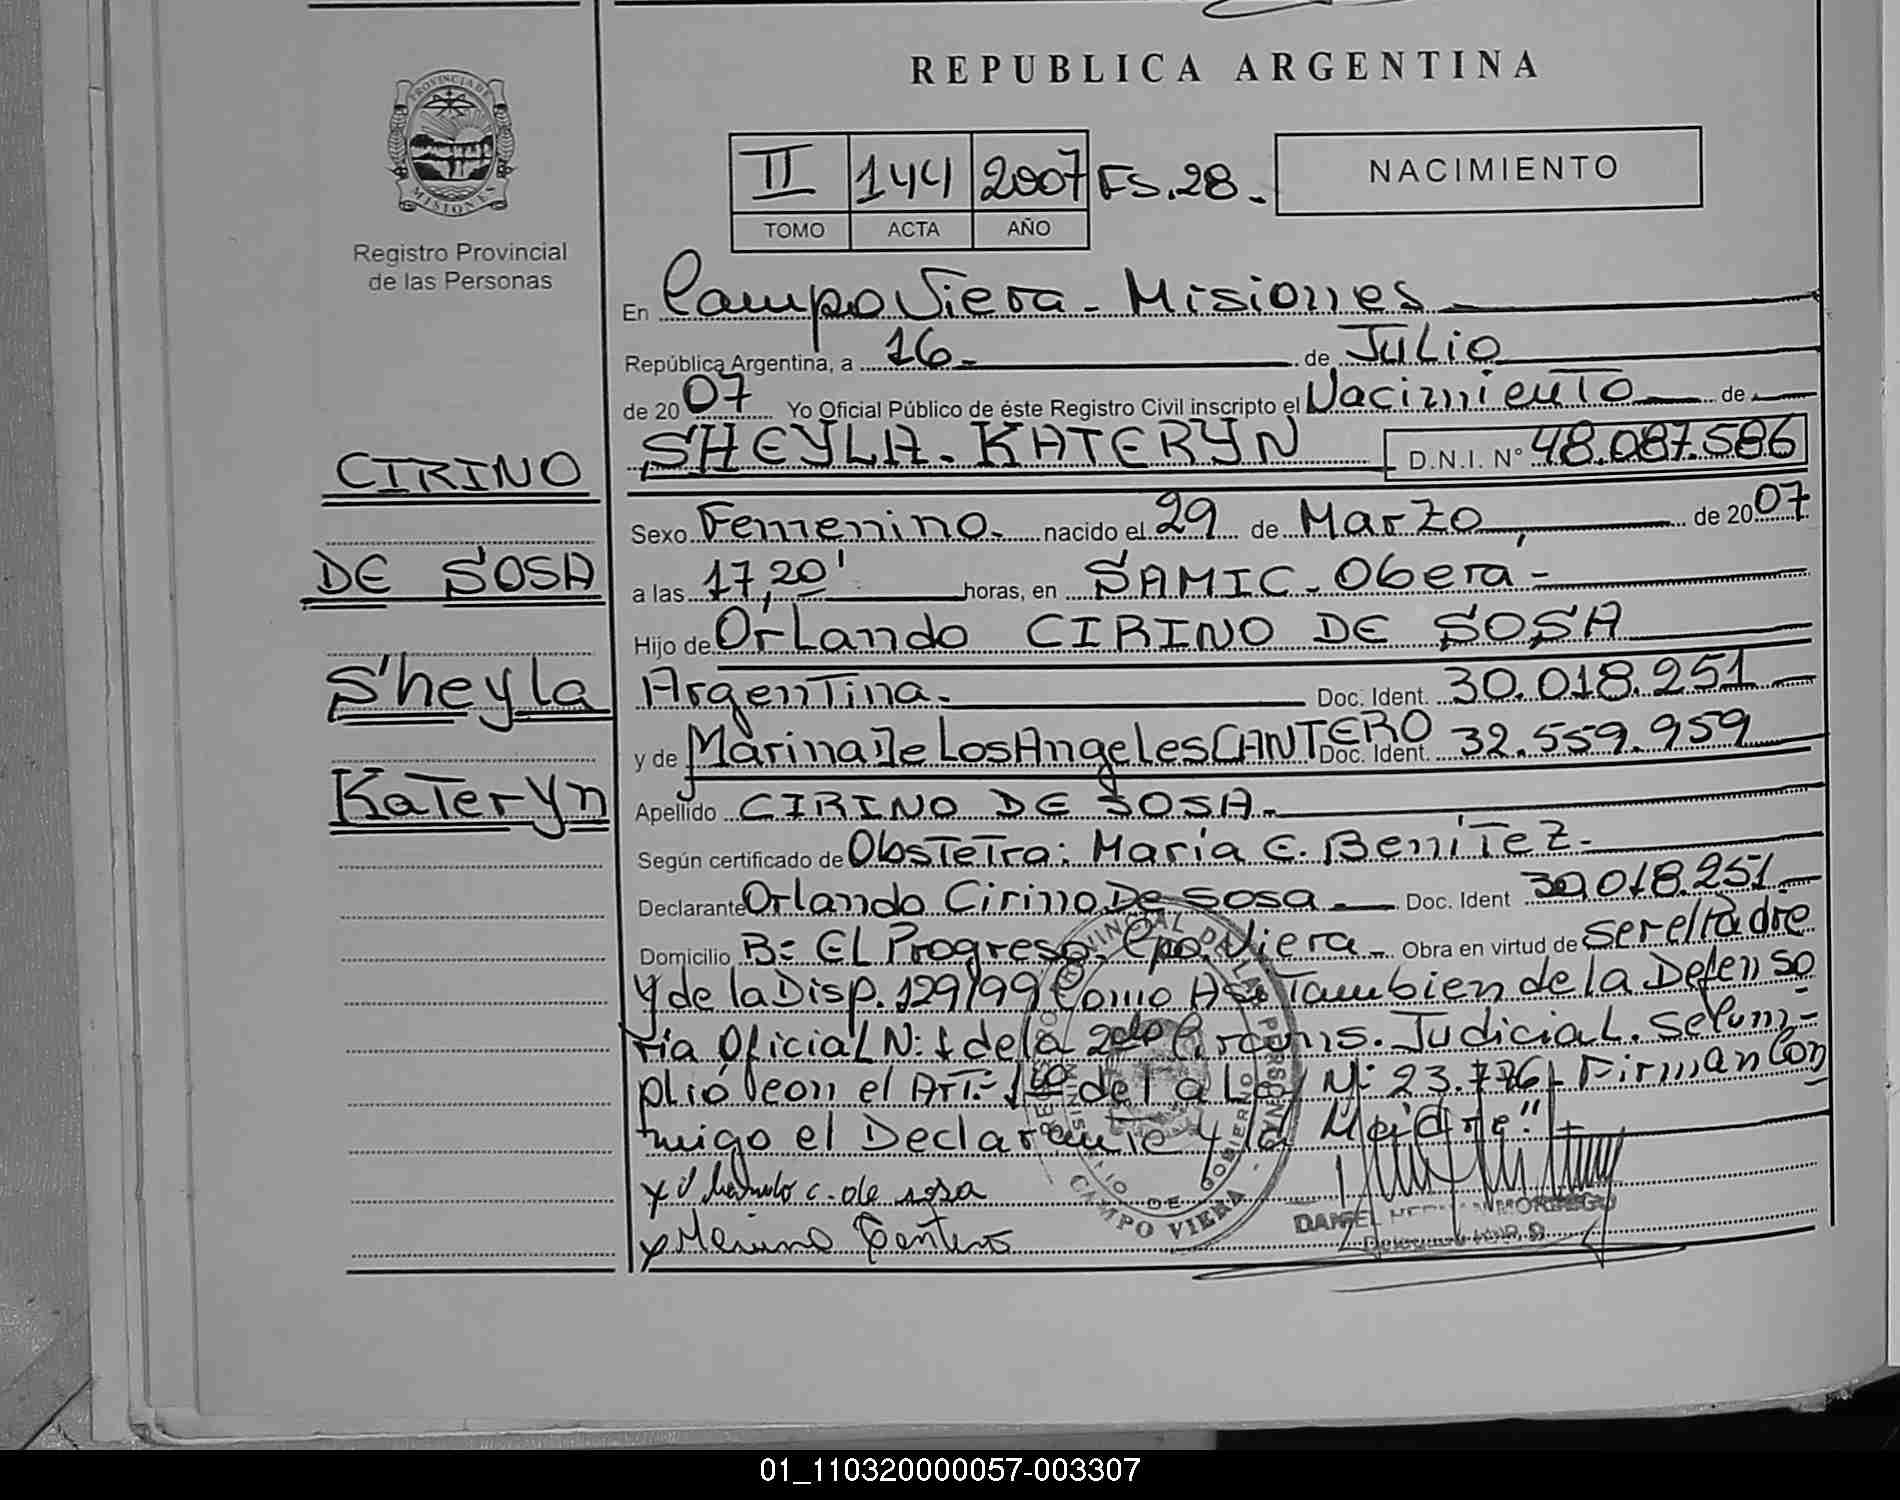 REPUBLICA ARGENTINA
PROVINCIA DE
MISIONES
Registro Provincial
de las Personas
II 144 2007 FS.28.-
TOMO ACTA AÑO
NACIMIENTO
En Campo Viera - Misiones
República Argentina, a 16- de Julio
de 2007 Yo Oficial Público de éste Registro Civil inscripto el Nacimiento de
SHEYLA. KATERYN D.N.I. N° 48.087.586
CIRINO
DE SOSA
Sheyla
Kateryn
Sexo Femenino. nacido el 29 de Marzo de 2007
a las 17,20' horas, en SAMIC - Oberá -
Hijo de Orlando CIRINO DE SOSA
Argentina. Doc. Ident. 30.018.251
y de Marina De Los Angeles CANTERO Doc. Ident. 32.559.959
Apellido CIRINO DE SOSA.-
Según certificado de Obstetra: María E. Benítez.
Declarante Orlando Cirino De Sosa Doc. Ident 30,018.251
Domicilio B= El Progreso. Cpo. Viera - Obra en virtud de ser el Padre
y de la Disp. 129/99 Como Así Tambien de la Defenso
ria Oficial N: 1 de la 2do Circuns. Judicial. Se Cum-
plió con el Art.= 1º de la Ley N: 23.776 Firman Con
migo el Declarante y la Madre"
x c. de sosa
x Marina Cantero
REGISTRO PROVINCIAL DE LAS PERSONAS
MINISTERIO DE GOBIERNO
CAMPO VIERA
DANIEL
01_110320000057-003307